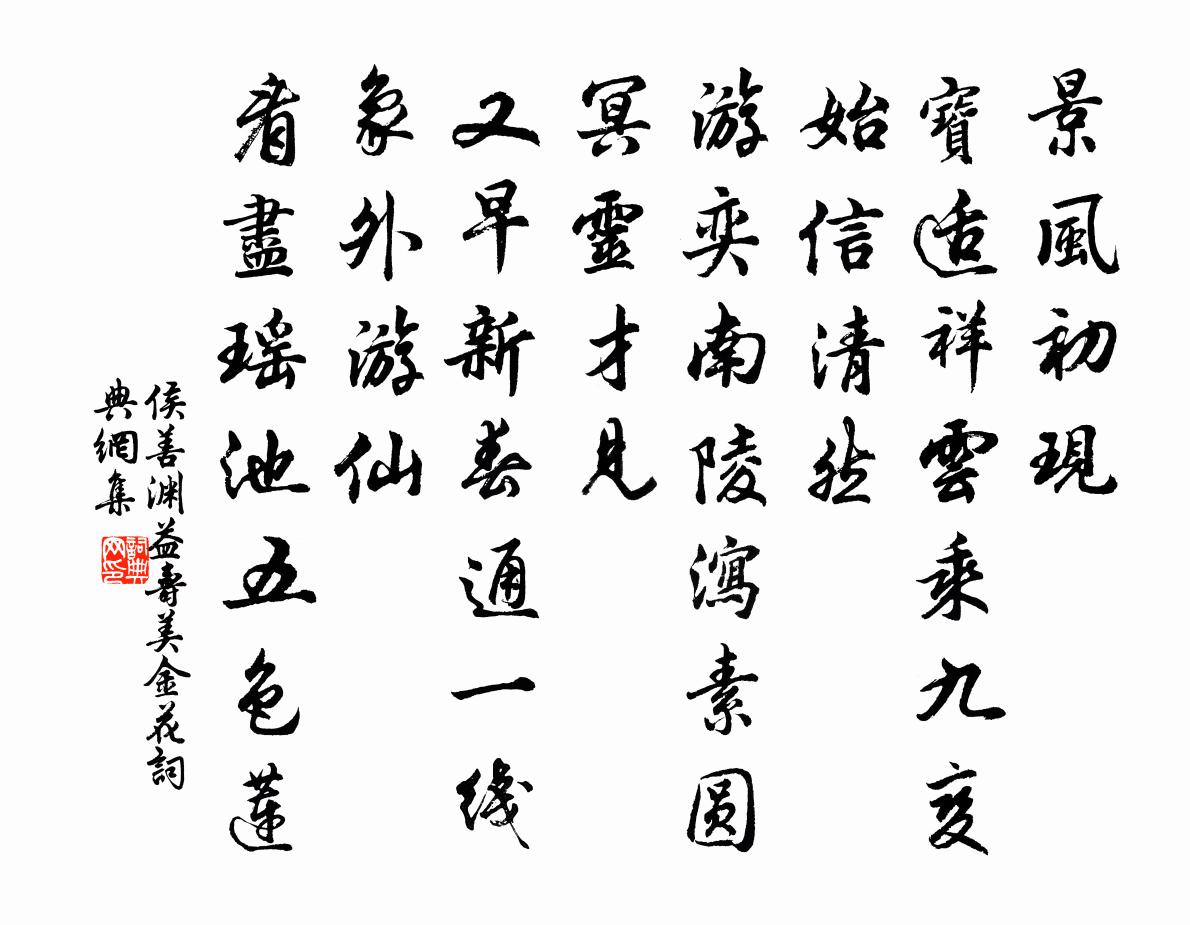 景風初現
寶适祥雲乘九变
始信清然
游奕南陵瀉素圆
冥靈才見
又早新春通一线
象外游仙
看盡瑶池五色蓮
侯善渊益壽美金花詞
典網集
詞典网印